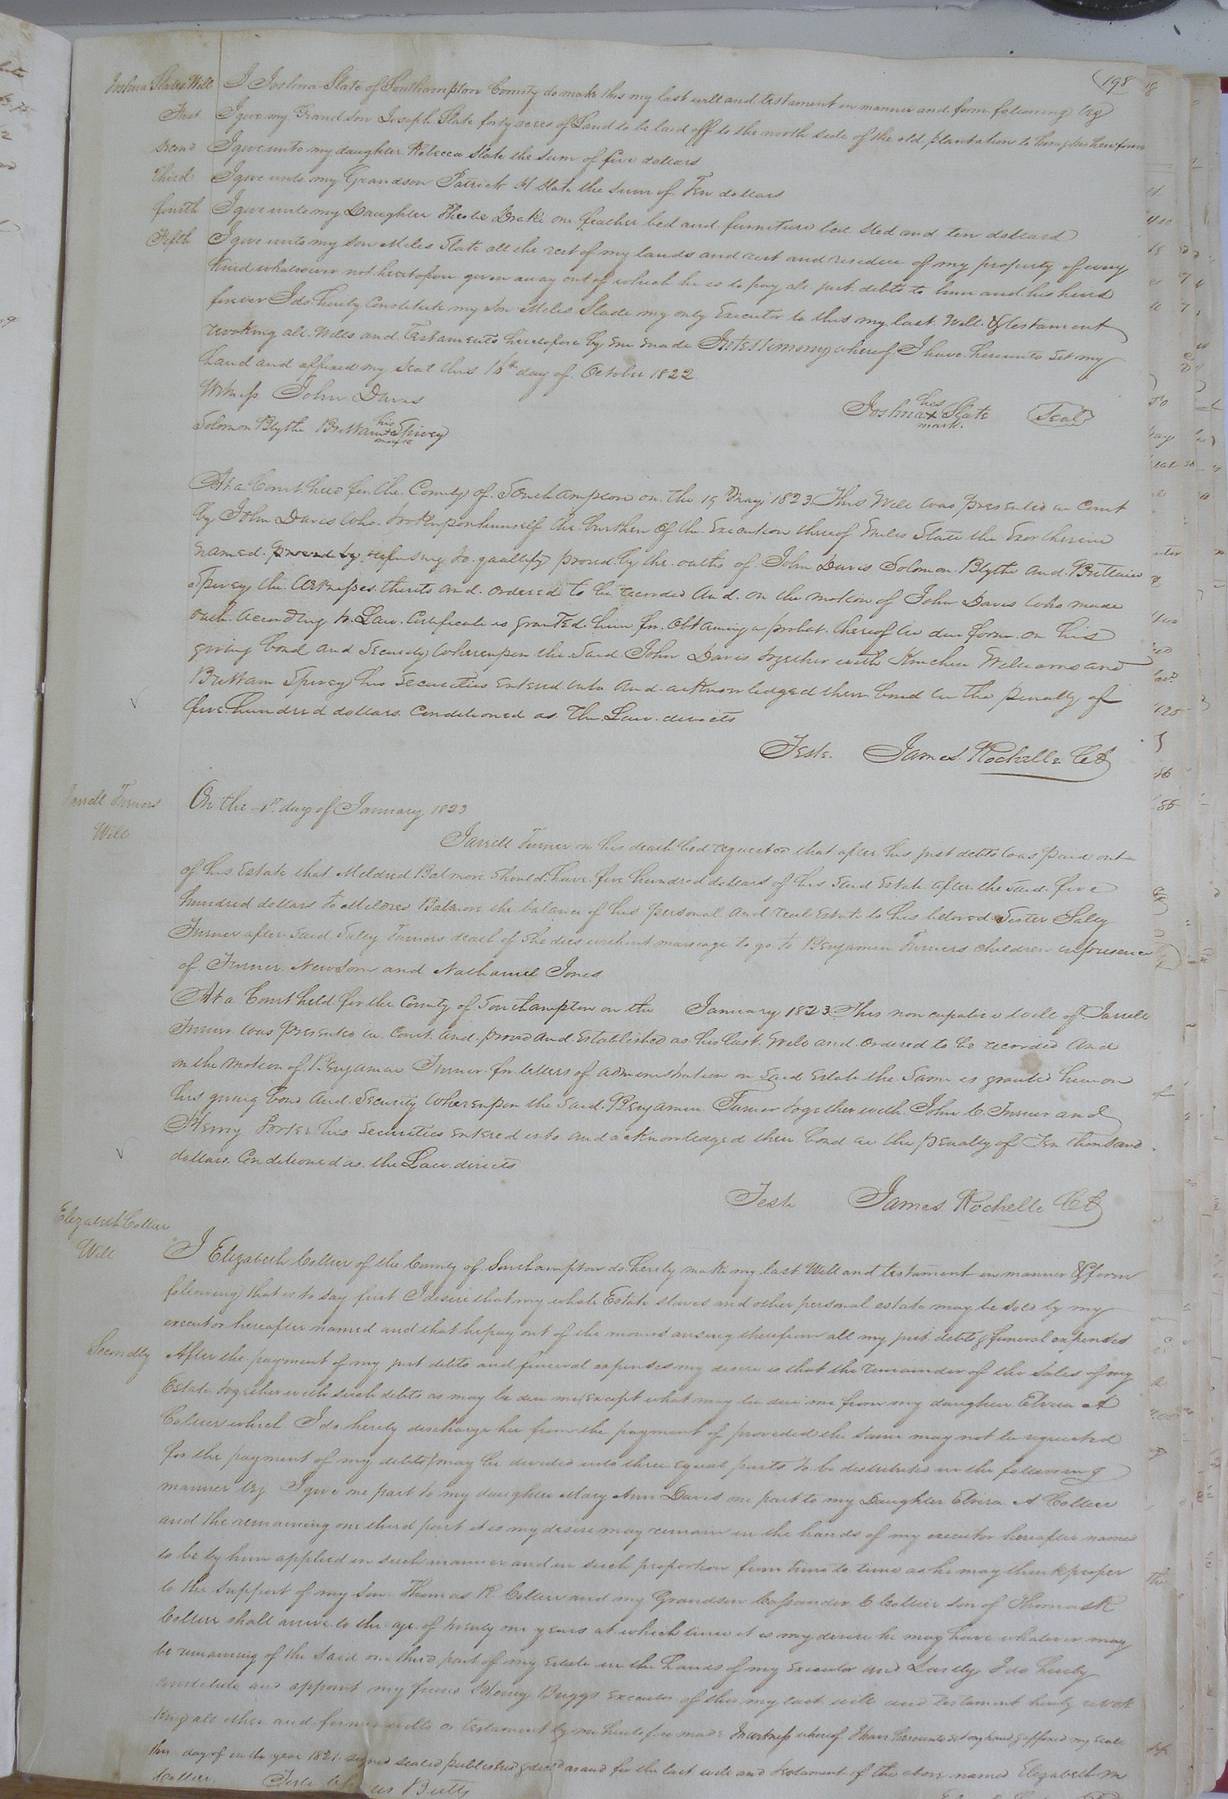 198
Joshua Slates Will I Joshua Slate of Southampton County do make this my last will and testament in manner and form following Viz
First I give my Grand son Joseph Slate forty acres of Land to be laid off to the north side of the old plantation to him
Second I give unto my daughter Rebecca Slate the sum of five dollars
third I give unto my Grandson Patrick H Slate the sum of Ten dollars
fourth I give unto my Daughter Drake one feather bed and furniture bed sted and ten dollars
Fifth I give unto my son Miles Slate all the rest of my lands and rest and residue off my property of every
kind whatsoever not heretofore given away out of which he is to pay all just debts to him and his heirs
forever I do hereby Constitute my son Miles Slade my only Executor to this my last Will & testament
revoking all Wills and Testaments heretofore by me made In testimony whereof I have hereunto set my
hand and affixed my seal this day of October 1822
Witness John Davis Joshua his x mark Slate Seal
Solomon Blythe Brittain his x mark Spivey
At a Court held for the County of Southampton on the 19 May 1823 This Will was presented in Court
by John Davis who took upon himself the burthen of the Execution thereof Miles Slate the Exor therein
named refusing to quallify proved by the oaths of John Davis Solomon Blythe and Brittain
Spivey the Witnesses thereto and ordered to be recorded And on the motion of John Davis who made
oath according to Law Certificate is granted him for obtaining a probat thereof in due form on his
giving bond and Security Whereupon the said John Davis together with Kinchen Williams and
Brittain Spivey his Securities entered into and acknowledged their bond in the penalty of
five hundred dollars Conditioned as The Law directs
Teste James Rochelle CC
Jarrell Turners On the 1st day of January 1823
Will
Jarrell Turner on his death bed requested that after his just debts was paid out
of his Estate that Mildred Balmore should have five hundred dollars of his said Estate after the said five
hundred dollars to Mildred Balmore the balance of his personal and real Estate to his beloved Sister Saley
Turner after said Saley Turners death if she dies without marriage to go to Benjamin Turners children in presence
of Turner Newsom and Nathaniel Jones
At a Court held for the County of Southampton on the January 1823 This noncupative will of Jarrell
Turner was Presented in Court and proved and Established as his last Will and ordered to be recorded And
on the Motion of Benjamin Turner for letters of administration on said Estate the Same is granted him on
his giving bond and Security Whereupon the said Benjamin Turner together with John C Turner and
Henry Porter his Securities entered into and acknowledged their bond in the penalty of Ten thousand
dollars Conditioned as the Law directs
Test James Rochelle CC
Elizabeth Collier
Will I Elizabeth Collier of the County of Southampton do hereby make my last Will and testament in manner & form
following that is to say first I desire that my whole Estate slaves and other personal estate may be sold by my
executor hereafter named and that he pay out of the monies arising therefrom all my just debts & funeral expenses
Secondly After the payment of my just debts and funeral expenses my desire is that the remainder of the Sales of my
Estate together with such debts as may be due me except what may be due me from my daughter Elvira A
Collier which I do hereby discharge her from the payment of provided the same may not be required
for the payment of my debts may be divided into three equal parts to be distributed in the following
manner viz I give one part to my daughter Mary Ann Davis one part to my Daughter Elvira A Collier
and the remaining one third part it is my desire may remain in the hands of my executor hereafter named
to be by him applied in such manner and in such proportion from time to time as he may think proper
to the support of my son Thomas R Collier and my Grandson C Collier son of Thomas R
Collier shall arrive to the age of twenty one years at which time it is my desire he may have whatever may
be remaining of the said one third part of my Estate in the hands of my Executor and Lastly I do hereby
constitute and appoint my friend Henry Briggs Executor of this my last will and testament hereby revok
king all other and former wills or testament by me heretofore made In witness whereof I have hereunto set my hand & affixed my seal
this day of in the year 1821 signed sealed published as and for the last will and testament of the above named Elizabeth M
Collier Teste Butts